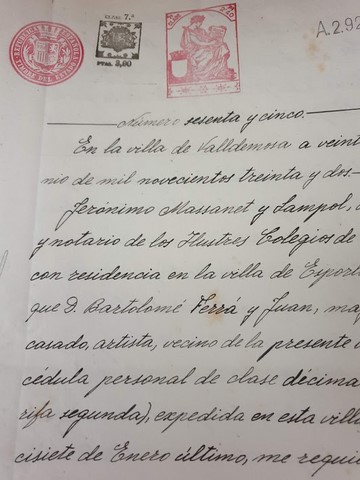 CLASE 7.ª
PTAS. 3,00
A.2.92
Número sesenta y cinco.
En la villa de Valldemosa a veint
nio de mil novecientos treinta y dos.
Jerónimo Massanet y Sampol,
y notario de los Ilustres Colegios de
con residencia en la villa de Esporl
que D. Bartolomé Ferrá y Juan, ma
casado, artista, vecino de la presente
cédula personal de clase décima
rifa segunda), expedida en esta villa
cisiete de Enero último, me requi